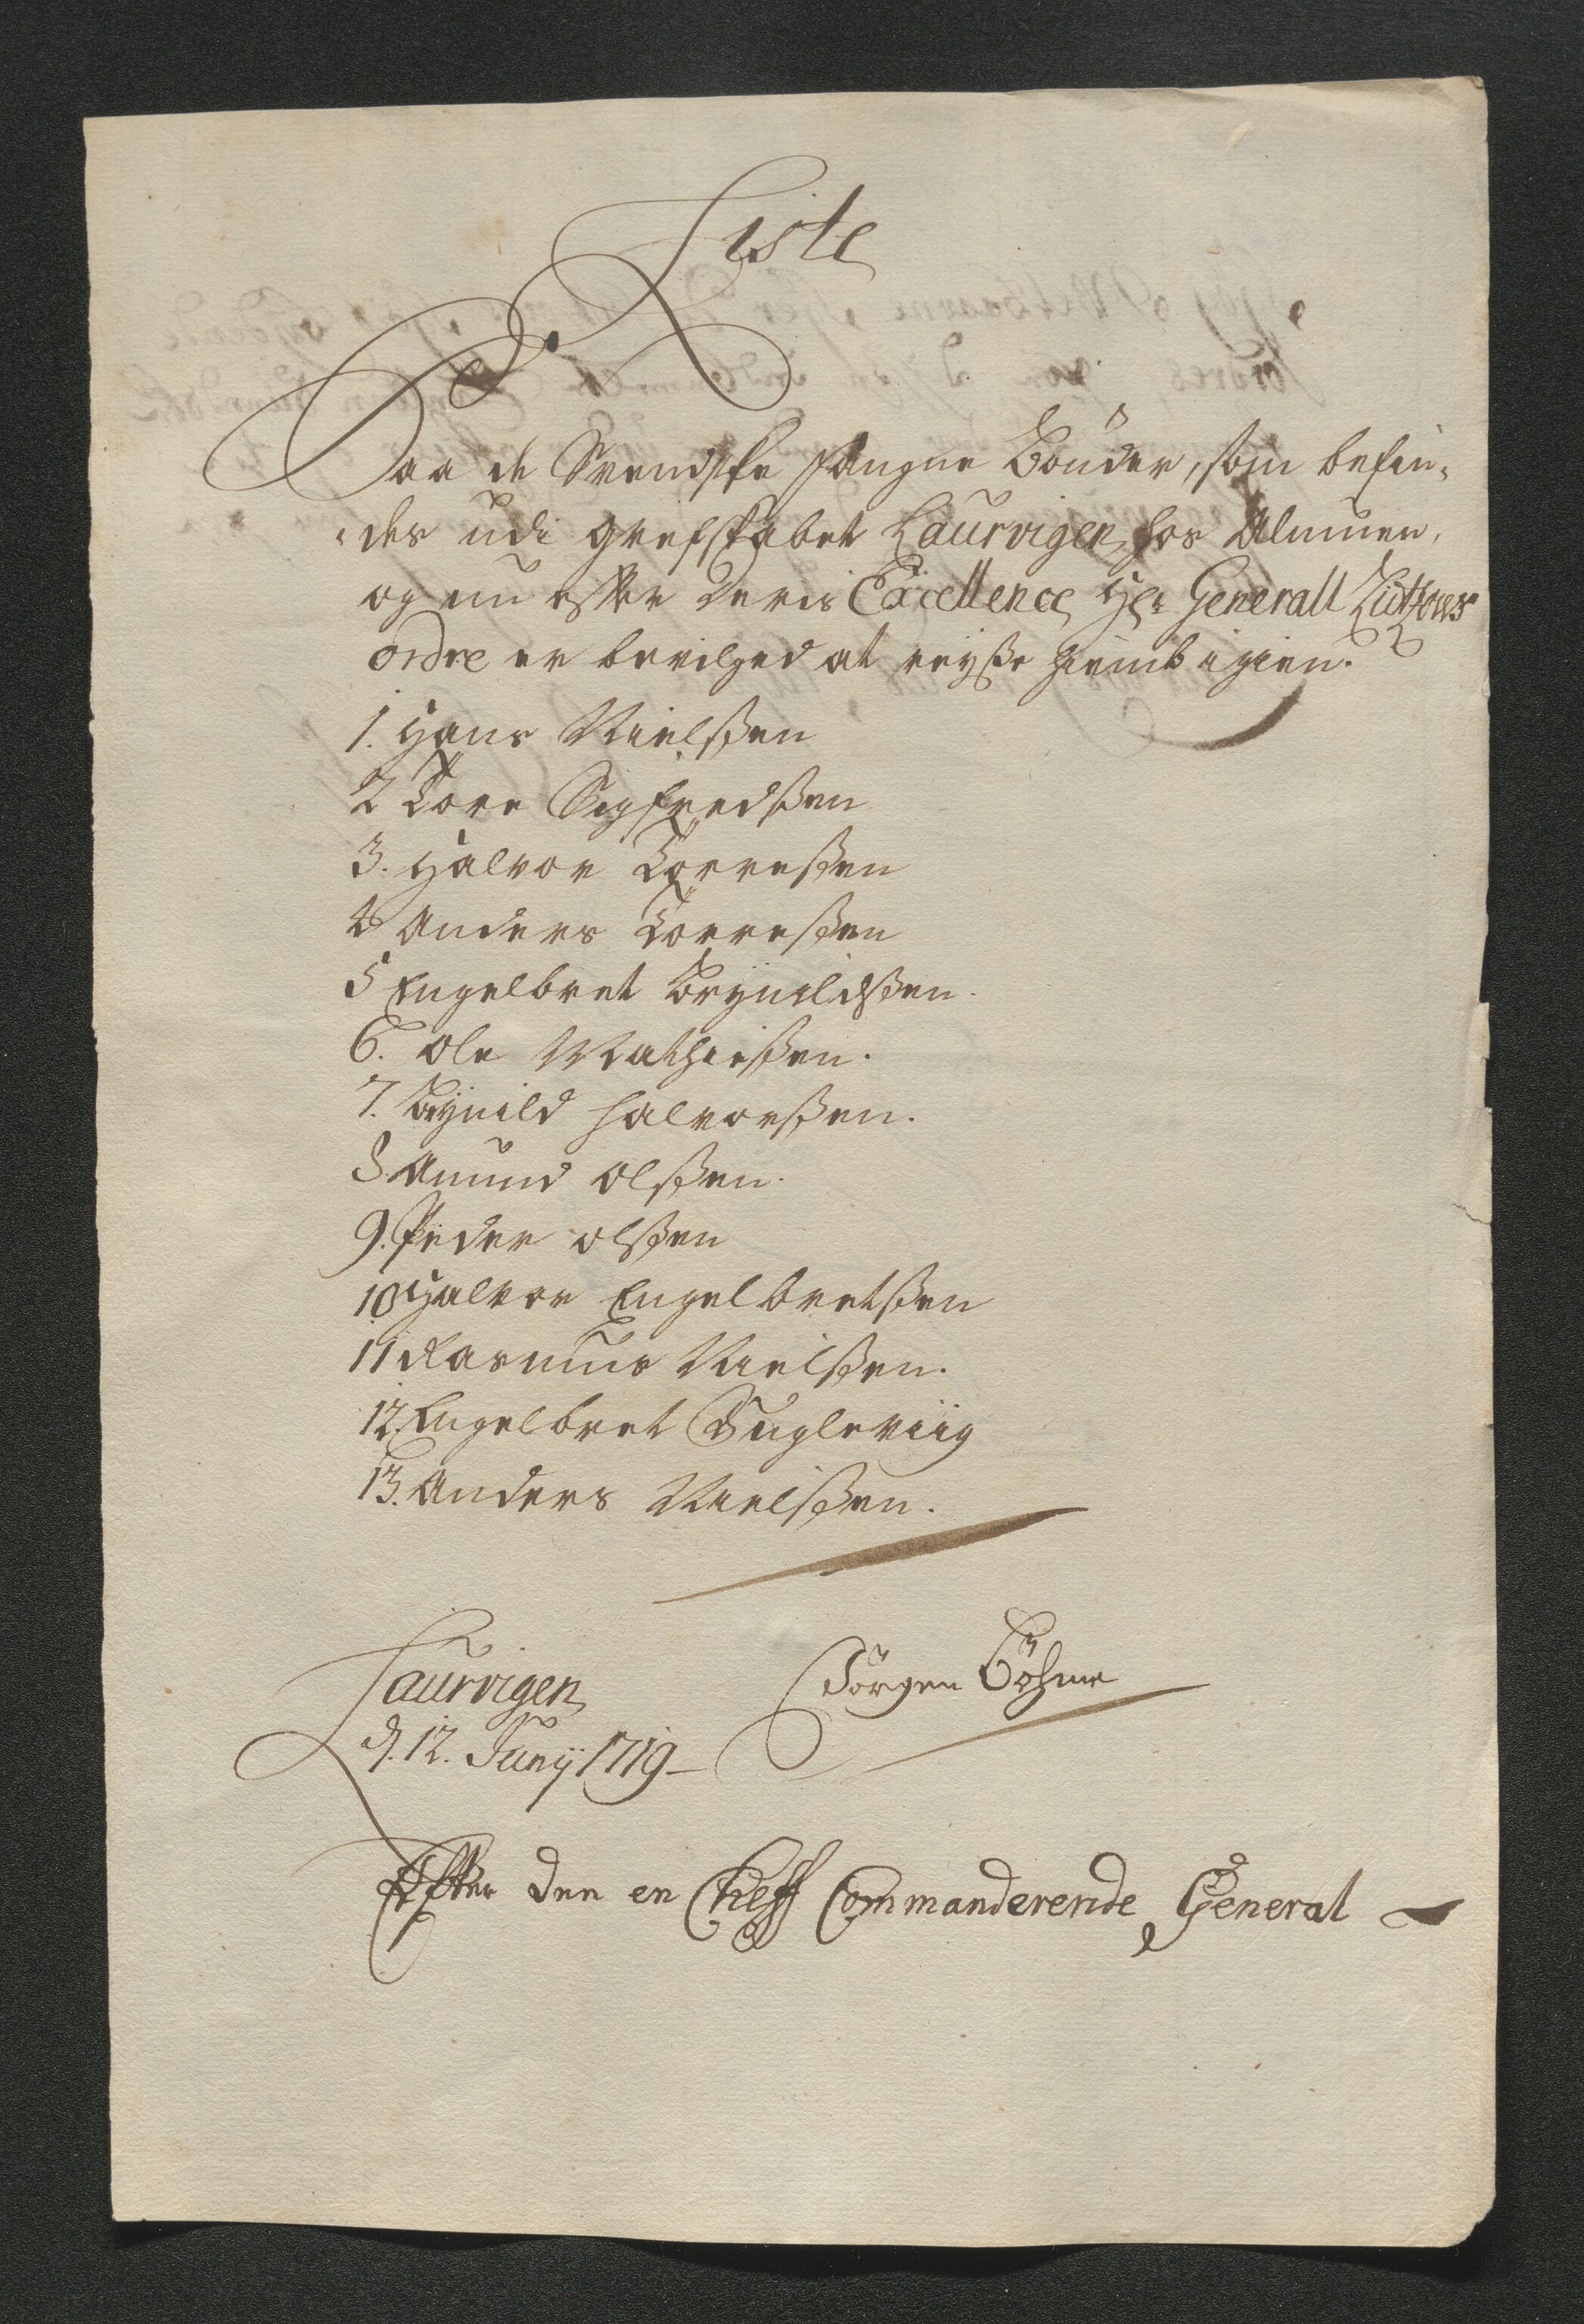 Liste
Paa de Svendske fangne Bönder, som befin-
des udi grefskabet Laurvigen, hos Almuen,
og nu efter Deris Excellence Hr: Generall Lützows
ordre er bevilged at reyße hiemb igien.
1. Hans Nielßen
2 Tore Sigfredßen
3. Halvor Torreßen
4 Anders Torreßen
5 Engelbret Brynildßen.
6. Ole Mathießen.
7. Brynild Halvorßen.
8. Amund Olßen.
9. Peder Olßen
10 Halvor Engelbretßen
11 Rasmus Nielßen.
12. Engelbret Bugleviig
13. Anders Nielßen.
Laurvigen
d. 12. Junij 1719
Jörgen Böhme
Efter den en Cheff Commanderende General